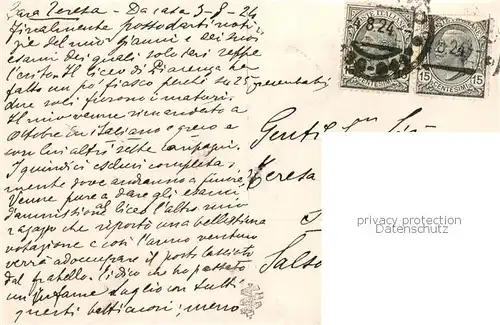 Cara Teresa - Da casa 3-8-24
Finalmente posso darti noti-
zie del mio Gianni e dei suoi
esami dei quali soltanto seppe
l'esito. Il liceo di Piacenza ha
fatto un po' fiasco perché su 25 presentati
due soli furono i maturi.
Il mio venne rimandato a
ottobre in italiano e greco e
con lui altri sette compagni.
I quindici esclusi completa-
mente dove andranno a finire?
Venne pure a dare gli esami
d'ammissione al liceo l'altro mio
ragazzo che riportò una bellissima
votazione e così l'anno venturo
verrà ad occupare il posto lasciato
dal fratello. Ti dico che ho passato
un infame luglio con tutti
questi batticuori; meno
Gentil
Teresa
Salso
8.24
8.24
15 CENTESIMI 15
CENTESIMI 15
privacy protection
www.ansichtskartenversand.com